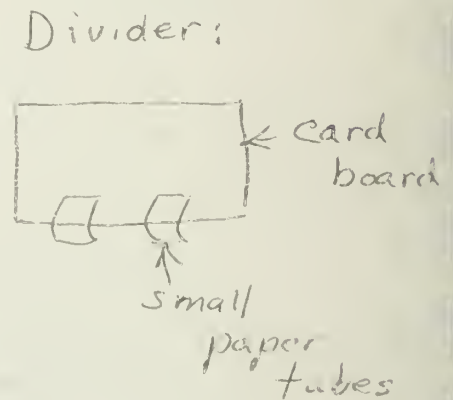 Divider:
Card
board
small
paper
tubes